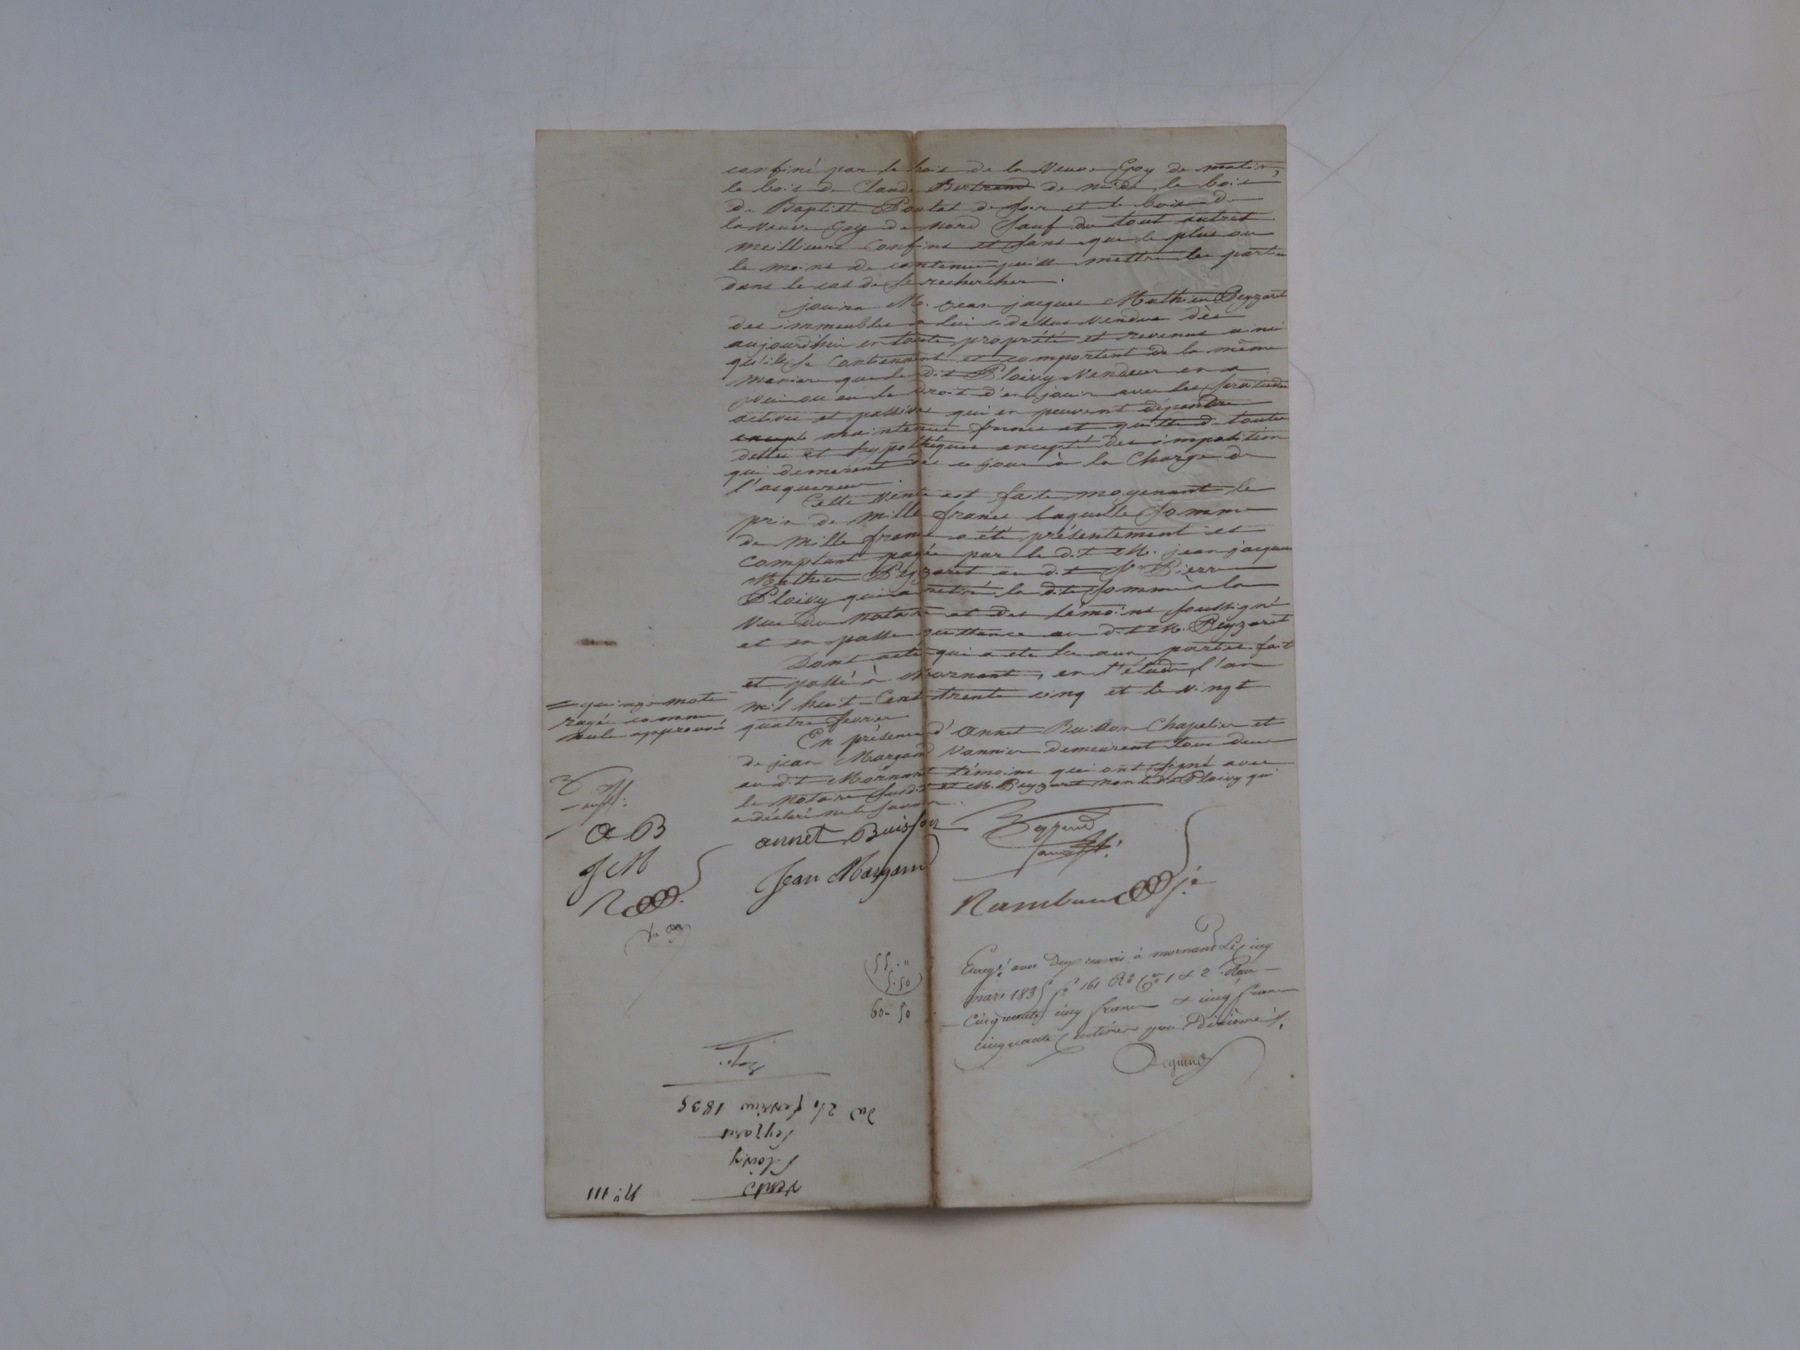 confiné par le bois de la Veuve Goy de matin,
le bois de Claude Bertrand de midi, le bois
de Baptiste Poulat de soir et le bois de
la Veuve Goy de Nord Sauf du tout autres
meilleurs confins et sans que le plus ou
le moins de contenue puisse mettre les parties
dans le cas de se rechercher.
jouira M. jean jacques Mathieu Peyzaret
des immeubles a lui cidessus Vendus dès
aujourdhui en toute propriété et revenus ainsi
qu'ils se Contiennent et comportent de la même
maniere que le dit Ploivy Vendeur en a
joui ou eu le droit d'en jouir avec les servitudes
actives et passives qui en peuvent dépendre
maintenue franc et quitte de toutes
dettes et hypothèques excepté des imposition
qui demeurent dès ce jour à la Charge de
l'acquereur.
Cette Vente est faite moyenant le
prix de Mille francs laquelle Somme
de Mille francs a été présentement et
Comptant payée par le dit M. jean jacques
Mathieu Peyzaret au dit Sr Pierre
Ploivy qui a retiré la dite Somme à la
Vue du Notaire et des témoins Soussigné
et en passe quittance au dit M. Peyzaret
Dont acte qui a été lu aux parties fait
et passé à Mornant, en l'étude, l'an
Mil huit-Cent-trente cinq et le vingt
quatre fevrier
En présence d'Annet Buisson Chapelier et
de jean Margand Vannier demeurant tous deux
au dit Mornant témoins qui ont signé avec
le Notaire susdit et M. Peyzaret non le dit Ploivy qui
a déclaré ne le Savoir.
= quinze mots
rayés comme
nuls approuvé
A B
J M
annet Buisson
Jean Margand
Peyzaret
55. "
5. 50
60- 50
Enregé avec deux renvois à mornant Le cinq
mars 1835 fo 161 Ro Ces 1 & 2. Reçu
Cinquante cinq francs & cinq francs
cinquante Centimes pour Dixième
No 111
Vente
Ploivy
Peyzaret
du 24 fevrier 1835